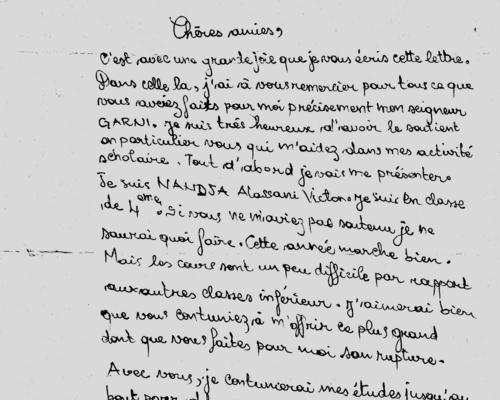 Chères amies,
C'est avec une grande joie que je vous écris cette lettre.
Dans celle la, j'ai à vous remercier pour tous ce que
vous aviez faits pour moi précisement mon seigneur
GARNI. Je suis très heureux d'avoir le soutient
en particulier vous qui m'aidez dans mes activité
scholaire. Tout d'abord je vais me présenter.
Je suis NANDJA Alassani Victor. Je suis En classe
de 4ème. Si vous ne m'aviez pas soutenu je ne
saurai quoi faire. Cette année marche bien.
Mais les cours sont un peu difficile par rapport
aux autres classes inférieur. J'aimerai bien
que vous contuniez à m'offrir ce plus grand
dont que vous faites pour moi san rupture.
Avec vous, je contunierai mes études jusqu'au
bout